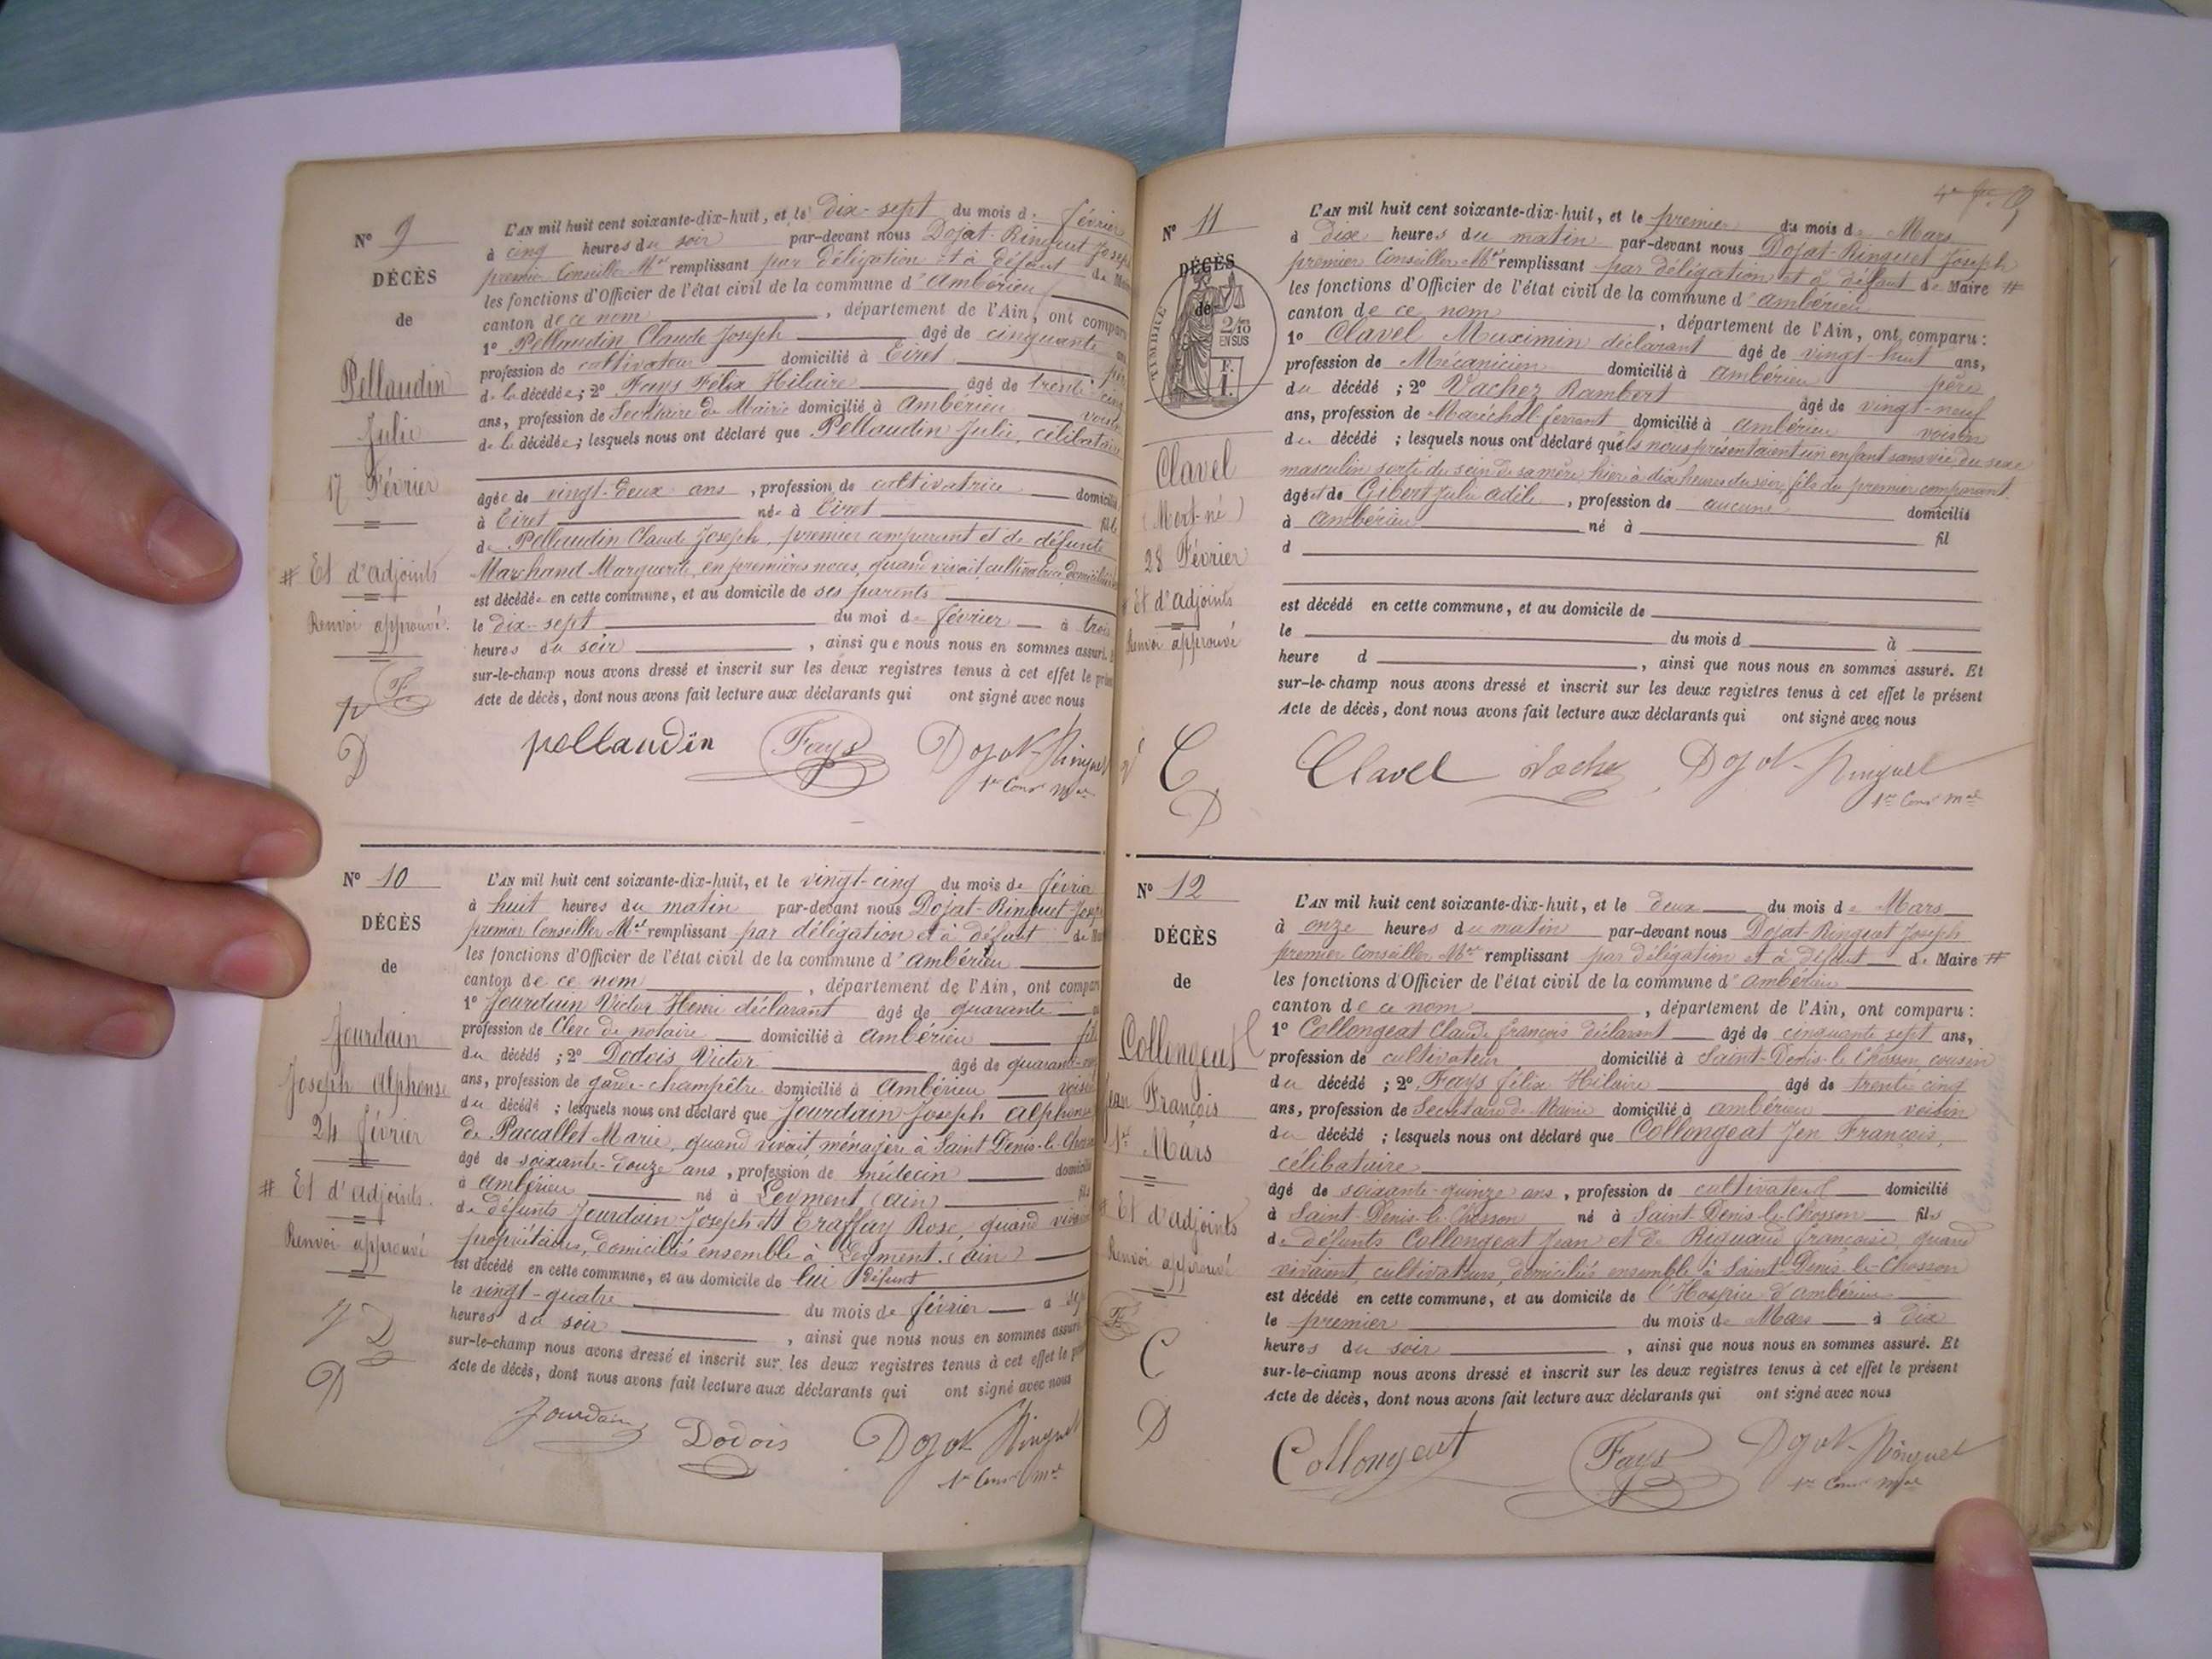 N° 9
DÉCÈS
de
Pellaudin
Julie
17 Février
# Et d'adjoints
Renvoi approuvé.
L'AN mil huit cent soixante-dix-huit, et le dix-sept du mois de février
à cinq heures du soir par-devant nous Dojat-Ringuet Joseph
premier Conseiller Mal remplissant par délégation et à défaut de
les fonctions d'Officier de l'état civil de la commune d'Ambérieu
canton de ce nom, département de l'Ain, ont comparu
1° Pellaudin Claude Joseph âgé de cinquante
profession de cultivateur domicilié à Eiret père
de la décédée; 2° Fays Félix Hilaire âgé de trente cinq
ans, profession de Secrétaire de Mairie domicilié à Ambérieu voisin
de la décédée; lesquels nous ont déclaré que Pellaudin Julie, célibataire
âgée de vingt-deux ans, profession de cultivatrice domicilié
à Eiret née à Eiret fille
de Pellaudin Claude Joseph, premier comparant et de défunte
Marchand Marguerite, en premières noces, quand vivait, cultivatrice, domiciliée
est décédée en cette commune, et au domicile de ses parents
le dix-sept du moi de février à trois
heures du soir, ainsi que nous nous en sommes assuré.
sur-le-champ nous avons dressé et inscrit sur les deux registres tenus à cet effet le
Acte de décès, dont nous avons fait lecture aux déclarants qui ont signé avec nous
pellaudin Fays Dojat-Ringuet
1er Conser Mal
N° 10
DÉCÈS
de
Jourdain
Joseph Alphonse
24 février
# Et d'adjoints.
Renvoi approuvé
L'AN mil huit cent soixante-dix-huit, et le vingt-cinq du mois de février
à huit heures du matin par-devant nous Dojat-Ringuet Joseph
premier Conseiller Mal remplissant par délégation et à défaut de
les fonctions d'Officier de l'état civil de la commune d'Ambérieu
canton de ce nom, département de l'Ain, ont comparu
1° Jourdain Victor Henri déclarant âgé de quarante
profession de Clerc de notaire domicilié à Ambérieu fils
du décédé; 2° Dodois Victor âgé de quarante
ans, profession de garde-champêtre domicilié à Ambérieu voisin
du décédé; lesquels nous ont déclaré que Jourdain Joseph Alphonse
de Paccallet Marie, quand vivait, ménagère à Saint Denis-le-Chosson
âgé de soixante-douze ans, profession de médecin domicilié
à Ambérieu né à Leyment (Ain) fils
de défunts Jourdain Joseph et Eraffay Rose, quand vivaient
propriétaires, domiciliés ensemble à Leyment (Ain)
est décédé en cette commune, et au domicile de lui défunt
le vingt-quatre du mois de février à sept
heures du soir, ainsi que nous nous en sommes assuré
sur-le-champ nous avons dressé et inscrit sur les deux registres tenus à cet effet le
Acte de décès, dont nous avons fait lecture aux déclarants qui ont signé avec nous
Jourdain Dodois Dojat-Ringuet
1er Conser Mal
N° 11
DÉCÈS
de
TIMBRE
2/10
EN SUS
F.
1.
Clavel
(Mort-né)
28 Février
# Et d'adjoints
Renvoi approuvé
L'AN mil huit cent soixante-dix-huit, et le premier du mois de Mars
à dix heures du matin par-devant nous Dojat-Ringuet Joseph
premier Conseiller Mal remplissant par délégation et à défaut de Maire #
les fonctions d'Officier de l'état civil de la commune d'Ambérieu
canton de ce nom, département de l'Ain, ont comparu:
1° Clavel Maximin déclarant âgé de vingt-huit ans,
profession de Mécanicien domicilié à Ambérieu père
du décédé; 2° Vachez Rambert âgé de vingt-neuf
ans, profession de Maréchal-ferrant domicilié à Ambérieu voisin
du décédé; lesquels nous ont déclaré qu'ils nous présentaient un enfant sans vie du sexe
masculin sorti du sein de sa mère hier à dix heures du soir, fils du premier comparant
âgé et de Gibert Julie adile, profession de aucune domicilié
à Ambérieu né à fil
d
est décédé en cette commune, et au domicile de
le du mois d à
heure d, ainsi que nous nous en sommes assuré. Et
sur-le-champ nous avons dressé et inscrit sur les deux registres tenus à cet effet le présent
Acte de décès, dont nous avons fait lecture aux déclarants qui ont signé avec nous
Clavel Vachez Dojat-Ringuet
1er Conser Mal
N° 12
DÉCÈS
de
Collongeat
Jean François
1er Mars
# Et d'adjoints
Renvoi approuvé
L'AN mil huit cent soixante-dix-huit, et le deux du mois de Mars
à onze heures du matin par-devant nous Dojat-Ringuet Joseph
premier Conseiller Mal remplissant par délégation et à défaut de Maire #
les fonctions d'Officier de l'état civil de la commune d'Ambérieu
canton de ce nom, département de l'Ain, ont comparu:
1° Collongeat Claude François déclarant âgé de cinquante sept ans,
profession de cultivateur domicilié à Saint-Denis-le-Chosson, cousin
du décédé; 2° Fays félix Hilaire âgé de trente cinq
ans, profession de Secrétaire de Mairie domicilié à Ambérieu voisin
du décédé; lesquels nous ont déclaré que Collongeat Jen François,
célibataire
âgé de soixante-quinze ans, profession de cultivateur domicilié
à Saint-Denis-le-Chosson né à Saint-Denis-le-Chosson fils
de défunts Collongeat Jean et de Riguaud françoise, quand
vivaient, cultivateurs, domiciliés ensemble à Saint-Denis-le-Chosson
est décédé en cette commune, et au domicile de l'Hospice d'Ambérieu
le premier du mois de Mars à dix
heures du soir, ainsi que nous nous en sommes assuré. Et
sur-le-champ nous avons dressé et inscrit sur les deux registres tenus à cet effet le présent
Acte de décès, dont nous avons fait lecture aux déclarants qui ont signé avec nous
Collongeat Fays Dojat-Ringuet
1er Conser Mal